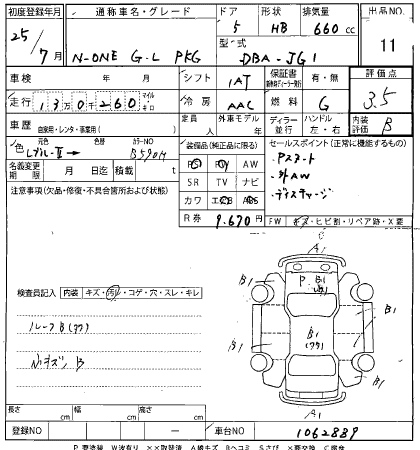 初度登録年月 通称車名・グレード ドア 形状 排気量 出品NO.
25/7月 N-ONE G・L PKG 5 HB 660cc 11
型・式 DBA-JG1
車検 年 月 シフト IAT 保証書 有・無 評価点
走行 13万0千260 マイル キロ 冷房 AAC 燃料 G 3.5
車歴 自家用・レンタ・事業用( ) 定員 人 外車モデル 年 ディーラー 並行 ハンドル 左・右 内装評価 B
色 元色 色替 カラーNO B590M
装備品(純正品に限る) セールスポイント(正常に機能するもの)
PS PW AW ・Pスタート
名義変更期限 月 日迄 積載 t SR TV ナビ ・外AW
注意事項(欠品・修復・不具合箇所および状態) カワ エアB ABS ・ディスチャージ
R券 9.670円 FW キズ・ヒビ割・リペア跡・X要
A1
B1 P B1 B1
検査員記入 内装 キズ・汚レ・コゲ・穴・スレ・キレ
ルーフB(ウウ) B1 B1(ウウ) B1
小キズ、B
A1
長さ cm 幅 cm 高さ cm
登録NO ー 車台NO 1062889
P要塗装 W波有り ××取替済 A線キズ Bヘコミ Sさび ×要交換 C腐食